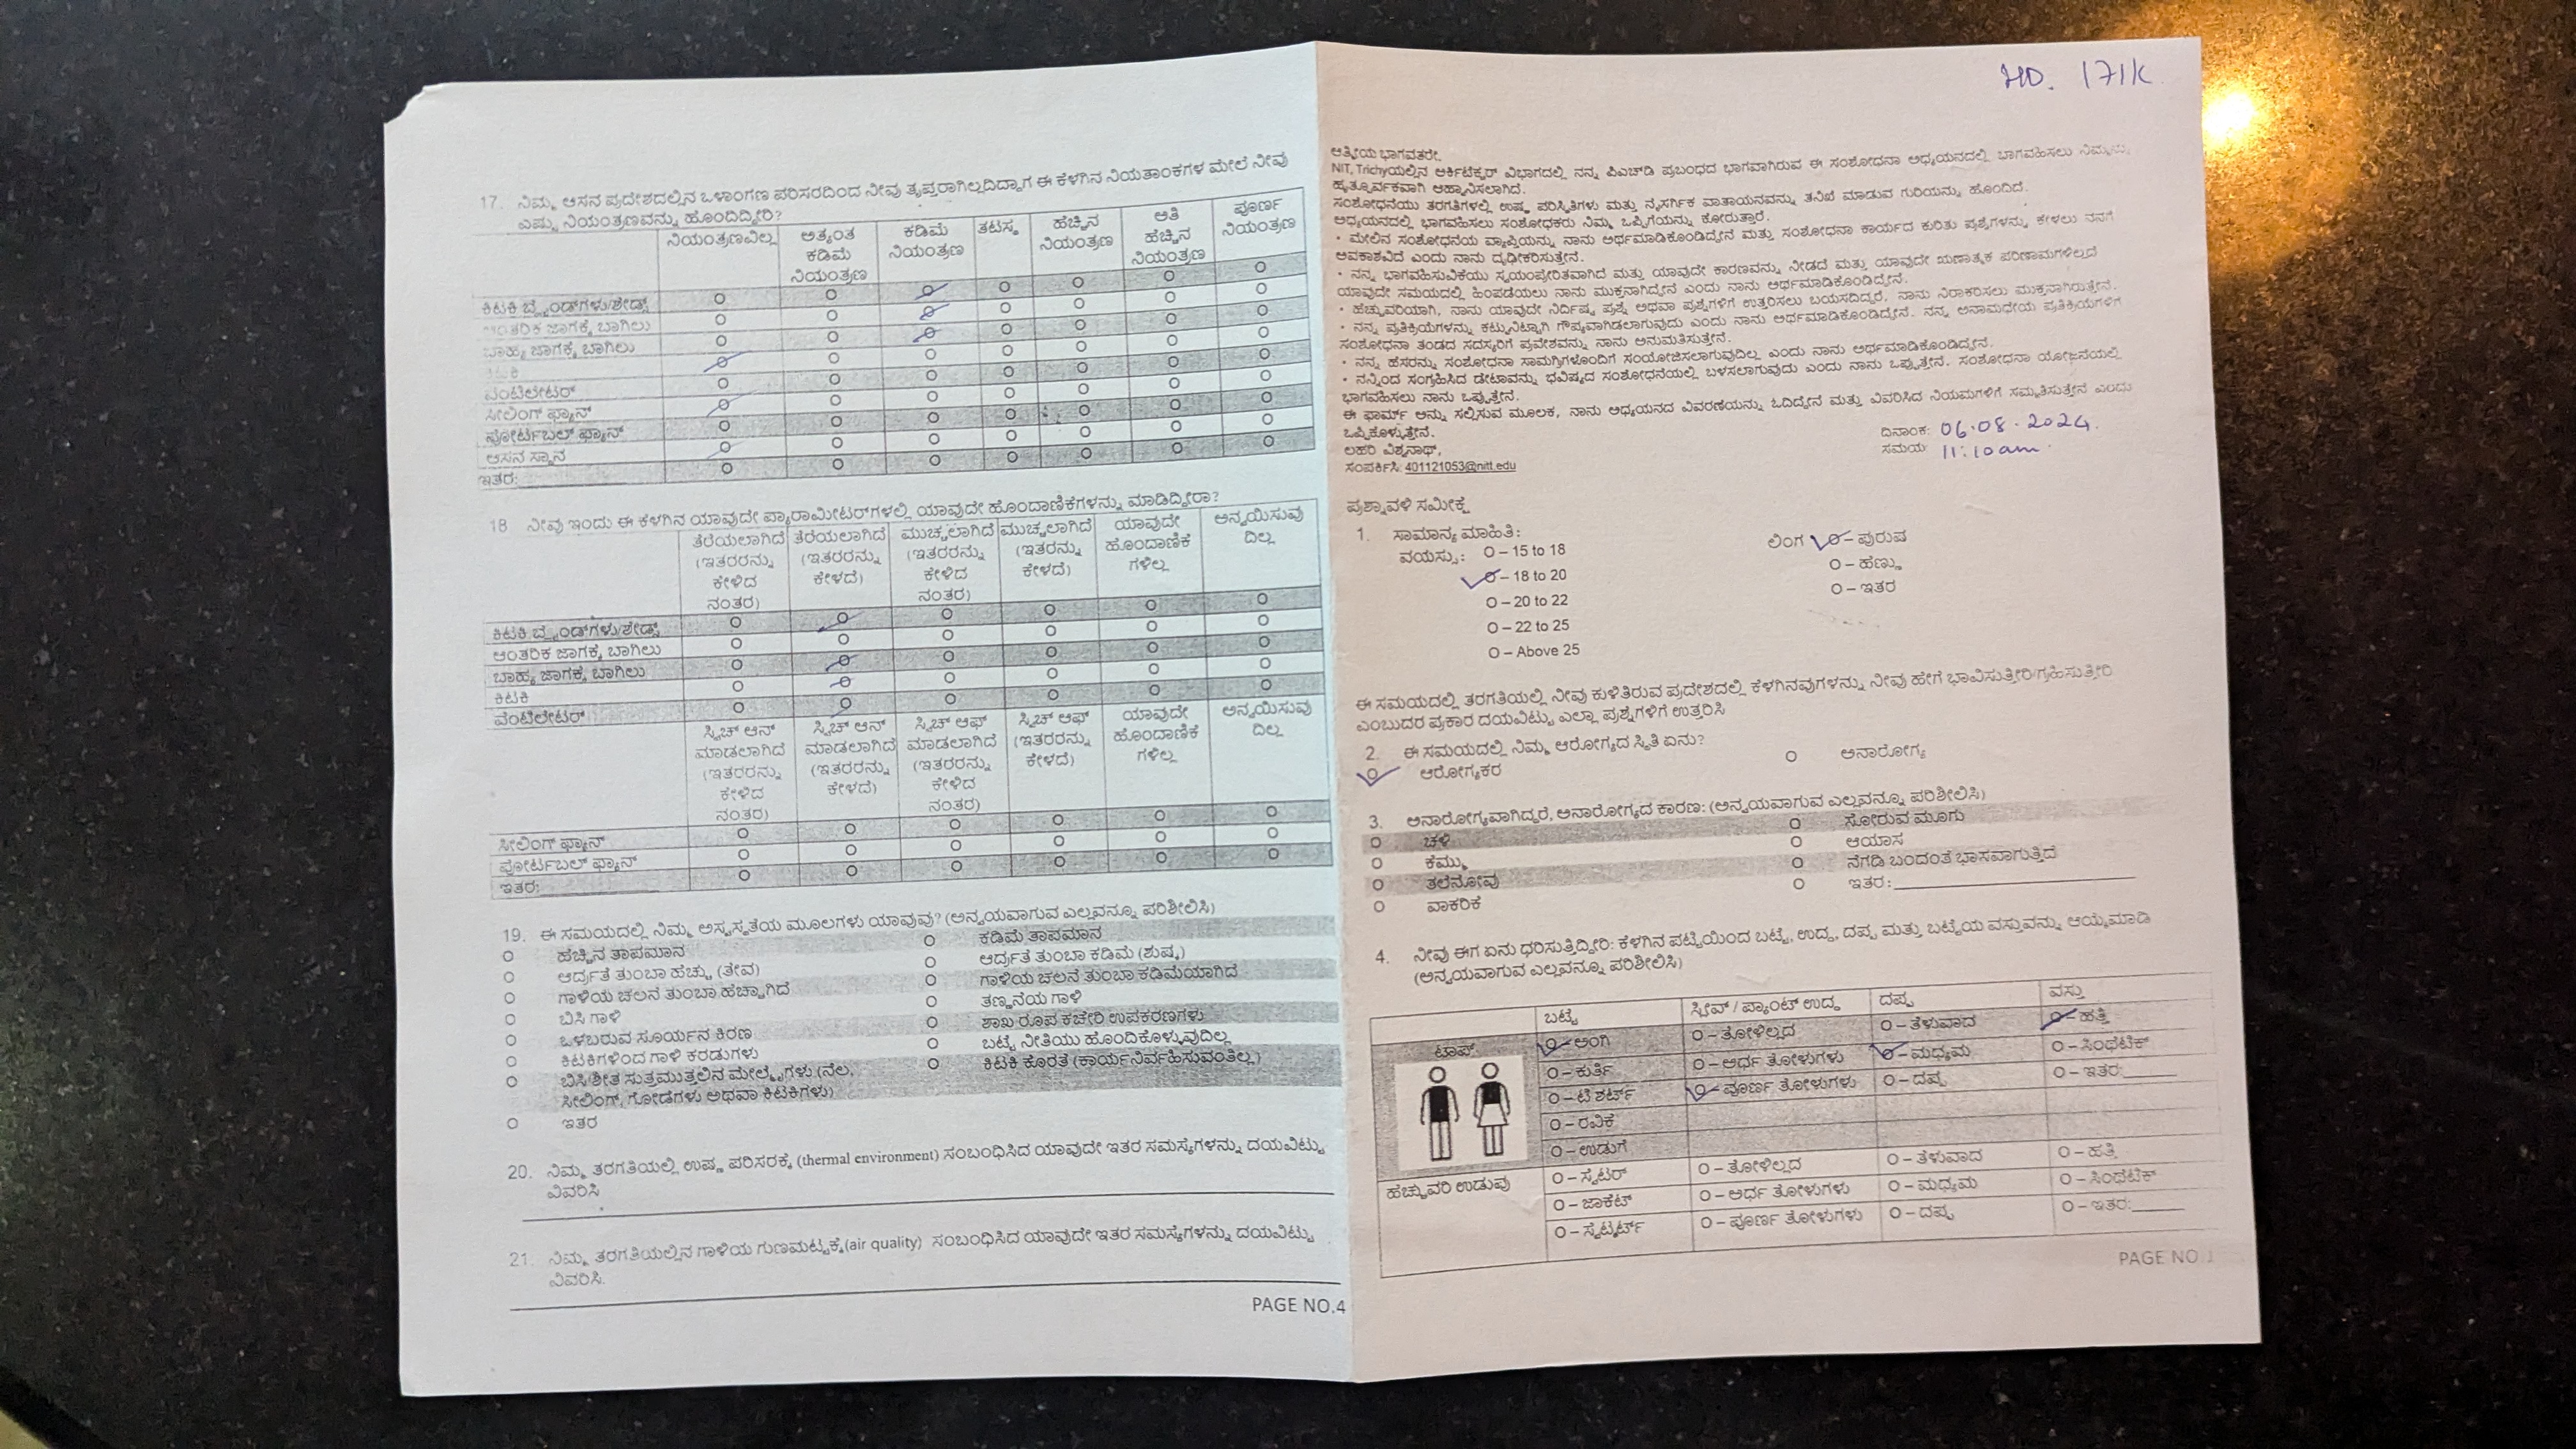 17. ನಿಮ್ಮ ಆಸನ ಪ್ರದೇಶದಲ್ಲಿನ ಒಳಾಂಗಣ ಪರಿಸರದಿಂದ ನೀವು ತೃಪ್ತರಾಗಿಲ್ಲದಿದ್ದಾಗ ಈ ಕೆಳಗಿನ ನಿಯತಾಂಕಗಳ ಮೇಲೆ ನೀವು
ಎಷ್ಟು ನಿಯಂತ್ರಣವನ್ನು ಹೊಂದಿದ್ದೀರಿ?
ನಿಯಂತ್ರಣವಿಲ್ಲ ಅತ್ಯಂತ ಕಡಿಮೆ ನಿಯಂತ್ರಣ ಕಡಿಮೆ ನಿಯಂತ್ರಣ ತಟಸ್ಥ ಹೆಚ್ಚಿನ ನಿಯಂತ್ರಣ ಅತಿ ಹೆಚ್ಚಿನ ನಿಯಂತ್ರಣ ಪೂರ್ಣ ನಿಯಂತ್ರಣ
ಕಿಟಕಿ ಬ್ಲೈಂಡ್‌ಗಳು/ಶೇಡ್ಸ್
ಆಂತರಿಕ ಜಾಗಕ್ಕೆ ಬಾಗಿಲು
ಬಾಹ್ಯ ಜಾಗಕ್ಕೆ ಬಾಗಿಲು
ಕಿಟಕಿ
ವೆಂಟಿಲೇಟರ್
ಸೀಲಿಂಗ್ ಫ್ಯಾನ್
ಪೋರ್ಟಬಲ್ ಫ್ಯಾನ್
ಆಸನ ಸ್ಥಾನ
ಇತರ:
18 ನೀವು ಇಂದು ಈ ಕೆಳಗಿನ ಯಾವುದೇ ಪ್ಯಾರಾಮೀಟರ್‌ಗಳಲ್ಲಿ ಯಾವುದೇ ಹೊಂದಾಣಿಕೆಗಳನ್ನು ಮಾಡಿದ್ದೀರಾ?
ತೆರೆಯಲಾಗಿದೆ (ಇತರರನ್ನು ಕೇಳಿದ ನಂತರ) ತೆರೆಯಲಾಗಿದೆ (ಇತರರನ್ನು ಕೇಳದೆ) ಮುಚ್ಚಲಾಗಿದೆ (ಇತರರನ್ನು ಕೇಳಿದ ನಂತರ) ಮುಚ್ಚಲಾಗಿದೆ (ಇತರರನ್ನು ಕೇಳದೆ) ಯಾವುದೇ ಹೊಂದಾಣಿಕೆ ಗಳಿಲ್ಲ ಅನ್ವಯಿಸುವು ದಿಲ್ಲ
ಕಿಟಕಿ ಬ್ಲೈಂಡ್‌ಗಳು/ಶೇಡ್ಸ್
ಆಂತರಿಕ ಜಾಗಕ್ಕೆ ಬಾಗಿಲು
ಬಾಹ್ಯ ಜಾಗಕ್ಕೆ ಬಾಗಿಲು
ಕಿಟಕಿ
ವೆಂಟಿಲೇಟರ್
ಸ್ವಿಚ್ ಆನ್ ಮಾಡಲಾಗಿದೆ (ಇತರರನ್ನು ಕೇಳಿದ ನಂತರ) ಸ್ವಿಚ್ ಆನ್ ಮಾಡಲಾಗಿದೆ (ಇತರರನ್ನು ಕೇಳದೆ) ಸ್ವಿಚ್ ಆಫ್ ಮಾಡಲಾಗಿದೆ (ಇತರರನ್ನು ಕೇಳಿದ ನಂತರ) ಸ್ವಿಚ್ ಆಫ್ (ಇತರರನ್ನು ಕೇಳದೆ) ಯಾವುದೇ ಹೊಂದಾಣಿಕೆ ಗಳಿಲ್ಲ ಅನ್ವಯಿಸುವು ದಿಲ್ಲ
ಸೀಲಿಂಗ್ ಫ್ಯಾನ್
ಪೋರ್ಟಬಲ್ ಫ್ಯಾನ್
ಇತರ:
19. ಈ ಸಮಯದಲ್ಲಿ ನಿಮ್ಮ ಅಸ್ವಸ್ಥತೆಯ ಮೂಲಗಳು ಯಾವುವು? (ಅನ್ವಯವಾಗುವ ಎಲ್ಲವನ್ನೂ ಪರಿಶೀಲಿಸಿ)
ಹೆಚ್ಚಿನ ತಾಪಮಾನ ಕಡಿಮೆ ತಾಪಮಾನ
ಆರ್ದ್ರತೆ ತುಂಬಾ ಹೆಚ್ಚು (ತೇವ) ಆರ್ದ್ರತೆ ತುಂಬಾ ಕಡಿಮೆ (ಶುಷ್ಕ)
ಗಾಳಿಯ ಚಲನೆ ತುಂಬಾ ಹೆಚ್ಚಾಗಿದೆ ಗಾಳಿಯ ಚಲನೆ ತುಂಬಾ ಕಡಿಮೆಯಾಗಿದೆ
ಬಿಸಿ ಗಾಳಿ ತಣ್ಣನೆಯ ಗಾಳಿ
ಒಳಬರುವ ಸೂರ್ಯನ ಕಿರಣ ಶಾಖ ರೂಪ ಕಚೇರಿ ಉಪಕರಣಗಳು
ಕಿಟಕಿಗಳಿಂದ ಗಾಳಿ ಕರಡುಗಳು ಬಟ್ಟೆ ನೀತಿಯು ಹೊಂದಿಕೊಳ್ಳುವುದಿಲ್ಲ
ಬಿಸಿ/ಶೀತ ಸುತ್ತಮುತ್ತಲಿನ ಮೇಲ್ಮೈಗಳು (ನೆಲ, ಕಿಟಕಿ ಕೊರತೆ (ಕಾರ್ಯನಿರ್ವಹಿಸುವಂತಿಲ್ಲ)
ಸೀಲಿಂಗ್, ಗೋಡೆಗಳು ಅಥವಾ ಕಿಟಕಿಗಳು)
ಇತರ
20. ನಿಮ್ಮ ತರಗತಿಯಲ್ಲಿ ಉಷ್ಣ ಪರಿಸರಕ್ಕೆ (thermal environment) ಸಂಬಂಧಿಸಿದ ಯಾವುದೇ ಇತರ ಸಮಸ್ಯೆಗಳನ್ನು ದಯವಿಟ್ಟು
ವಿವರಿಸಿ
21. ನಿಮ್ಮ ತರಗತಿಯಲ್ಲಿನ ಗಾಳಿಯ ಗುಣಮಟ್ಟಕ್ಕೆ(air quality) ಸಂಬಂಧಿಸಿದ ಯಾವುದೇ ಇತರ ಸಮಸ್ಯೆಗಳನ್ನು ದಯವಿಟ್ಟು
ವಿವರಿಸಿ.
PAGE NO.4
171K
ಆತ್ಮೀಯ ಭಾಗವತರೇ,
NIT, Trichyಯಲ್ಲಿನ ಆರ್ಕಿಟೆಕ್ಚರ್ ವಿಭಾಗದಲ್ಲಿ ನನ್ನ ಪಿಎಚ್‌ಡಿ ಪ್ರಬಂಧದ ಭಾಗವಾಗಿರುವ ಈ ಸಂಶೋಧನಾ ಅಧ್ಯಯನದಲ್ಲಿ ಭಾಗವಹಿಸಲು ನಿಮ್ಮನ್ನು
ಹೃತ್ಪೂರ್ವಕವಾಗಿ ಆಹ್ವಾನಿಸಲಾಗಿದೆ.
ಸಂಶೋಧನೆಯು ತರಗತಿಗಳಲ್ಲಿ ಉಷ್ಣ ಪರಿಸ್ಥಿತಿಗಳು ಮತ್ತು ನೈಸರ್ಗಿಕ ವಾತಾಯನವನ್ನು ತನಿಖೆ ಮಾಡುವ ಗುರಿಯನ್ನು ಹೊಂದಿದೆ.
ಅಧ್ಯಯನದಲ್ಲಿ ಭಾಗವಹಿಸಲು ಸಂಶೋಧಕರು ನಿಮ್ಮ ಒಪ್ಪಿಗೆಯನ್ನು ಕೋರುತ್ತಾರೆ.
• ಮೇಲಿನ ಸಂಶೋಧನೆಯ ವ್ಯಾಪ್ತಿಯನ್ನು ನಾನು ಅರ್ಥಮಾಡಿಕೊಂಡಿದ್ದೇನೆ ಮತ್ತು ಸಂಶೋಧನಾ ಕಾರ್ಯದ ಕುರಿತು ಪ್ರಶ್ನೆಗಳನ್ನು ಕೇಳಲು ನನಗೆ
ಅವಕಾಶವಿದೆ ಎಂದು ನಾನು ದೃಢೀಕರಿಸುತ್ತೇನೆ.
• ನನ್ನ ಭಾಗವಹಿಸುವಿಕೆಯು ಸ್ವಯಂಪ್ರೇರಿತವಾಗಿದೆ ಮತ್ತು ಯಾವುದೇ ಕಾರಣವನ್ನು ನೀಡದೆ ಮತ್ತು ಯಾವುದೇ ಋಣಾತ್ಮಕ ಪರಿಣಾಮಗಳಿಲ್ಲದೆ
ಯಾವುದೇ ಸಮಯದಲ್ಲಿ ಹಿಂಪಡೆಯಲು ನಾನು ಮುಕ್ತನಾಗಿದ್ದೇನೆ ಎಂದು ನಾನು ಅರ್ಥಮಾಡಿಕೊಂಡಿದ್ದೇನೆ.
• ಹೆಚ್ಚುವರಿಯಾಗಿ, ನಾನು ಯಾವುದೇ ನಿರ್ದಿಷ್ಟ ಪ್ರಶ್ನೆ ಅಥವಾ ಪ್ರಶ್ನೆಗಳಿಗೆ ಉತ್ತರಿಸಲು ಬಯಸದಿದ್ದರೆ, ನಾನು ನಿರಾಕರಿಸಲು ಮುಕ್ತನಾಗಿರುತ್ತೇನೆ.
• ನನ್ನ ಪ್ರತಿಕ್ರಿಯೆಗಳನ್ನು ಕಟ್ಟುನಿಟ್ಟಾಗಿ ಗೌಪ್ಯವಾಗಿಡಲಾಗುವುದು ಎಂದು ನಾನು ಅರ್ಥಮಾಡಿಕೊಂಡಿದ್ದೇನೆ. ನನ್ನ ಅನಾಮಧೇಯ ಪ್ರತಿಕ್ರಿಯೆಗಳಿಗೆ
ಸಂಶೋಧನಾ ತಂಡದ ಸದಸ್ಯರಿಗೆ ಪ್ರವೇಶವನ್ನು ನಾನು ಅನುಮತಿಸುತ್ತೇನೆ.
• ನನ್ನ ಹೆಸರನ್ನು ಸಂಶೋಧನಾ ಸಾಮಗ್ರಿಗಳೊಂದಿಗೆ ಸಂಯೋಜಿಸಲಾಗುವುದಿಲ್ಲ ಎಂದು ನಾನು ಅರ್ಥಮಾಡಿಕೊಂಡಿದ್ದೇನೆ.
• ನನ್ನಿಂದ ಸಂಗ್ರಹಿಸಿದ ಡೇಟಾವನ್ನು ಭವಿಷ್ಯದ ಸಂಶೋಧನೆಯಲ್ಲಿ ಬಳಸಲಾಗುವುದು ಎಂದು ನಾನು ಒಪ್ಪುತ್ತೇನೆ. ಸಂಶೋಧನಾ ಯೋಜನೆಯಲ್ಲಿ
ಭಾಗವಹಿಸಲು ನಾನು ಒಪ್ಪುತ್ತೇನೆ.
ಈ ಫಾರ್ಮ್ ಅನ್ನು ಸಲ್ಲಿಸುವ ಮೂಲಕ, ನಾನು ಅಧ್ಯಯನದ ವಿವರಣೆಯನ್ನು ಓದಿದ್ದೇನೆ ಮತ್ತು ವಿವರಿಸಿದ ನಿಯಮಗಳಿಗೆ ಸಮ್ಮತಿಸುತ್ತೇನೆ ಎಂದು
ಒಪ್ಪಿಕೊಳ್ಳುತ್ತೇನೆ.
ಲಹರಿ ವಿಶ್ವನಾಥ್,
ಸಂಪರ್ಕಿಸಿ: 401121053@nitt.edu
ದಿನಾಂಕ: 06.08.2024.
ಸಮಯ: 11:10am.
ಪ್ರಶ್ನಾವಳಿ ಸಮೀಕ್ಷೆ
1. ಸಾಮಾನ್ಯ ಮಾಹಿತಿ:
ವಯಸ್ಸು: O – 15 to 18 ಲಿಂಗ O – ಪುರುಷ
O – 18 to 20 O – ಹೆಣ್ಣು
O – 20 to 22 O – ಇತರ
O – 22 to 25
O – Above 25
ಈ ಸಮಯದಲ್ಲಿ ತರಗತಿಯಲ್ಲಿ ನೀವು ಕುಳಿತಿರುವ ಪ್ರದೇಶದಲ್ಲಿ ಕೆಳಗಿನವುಗಳನ್ನು ನೀವು ಹೇಗೆ ಭಾವಿಸುತ್ತೀರಿ/ಗ್ರಹಿಸುತ್ತೀರಿ
ಎಂಬುದರ ಪ್ರಕಾರ ದಯವಿಟ್ಟು ಎಲ್ಲಾ ಪ್ರಶ್ನೆಗಳಿಗೆ ಉತ್ತರಿಸಿ
2. ಈ ಸಮಯದಲ್ಲಿ ನಿಮ್ಮ ಆರೋಗ್ಯದ ಸ್ಥಿತಿ ಏನು?
O ಆರೋಗ್ಯಕರ O ಅನಾರೋಗ್ಯ
3. ಅನಾರೋಗ್ಯವಾಗಿದ್ದರೆ, ಅನಾರೋಗ್ಯದ ಕಾರಣ: (ಅನ್ವಯವಾಗುವ ಎಲ್ಲವನ್ನೂ ಪರಿಶೀಲಿಸಿ)
O ಚಳಿ O ಸೋರುವ ಮೂಗು
O ಕೆಮ್ಮು O ಆಯಾಸ
O ತಲೆನೋವು O ನೆಗಡಿ ಬಂದಂತೆ ಭಾಸವಾಗುತ್ತಿದೆ
O ವಾಕರಿಕೆ O ಇತರ:
4. ನೀವು ಈಗ ಏನು ಧರಿಸುತ್ತಿದ್ದೀರಿ: ಕೆಳಗಿನ ಪಟ್ಟಿಯಿಂದ ಬಟ್ಟೆ, ಉದ್ದ, ದಪ್ಪ ಮತ್ತು ಬಟ್ಟೆಯ ವಸ್ತುವನ್ನು ಆಯ್ಕೆಮಾಡಿ
(ಅನ್ವಯವಾಗುವ ಎಲ್ಲವನ್ನೂ ಪರಿಶೀಲಿಸಿ)
ಬಟ್ಟೆ ಸ್ಲೀವ್ / ಪ್ಯಾಂಟ್ ಉದ್ದ ದಪ್ಪ ವಸ್ತು
ಟಾಪ್ O – ಅಂಗಿ O – ತೋಳಿಲ್ಲದ O – ತೆಳುವಾದ O – ಹತ್ತಿ
O – ಕುರ್ತಿ O – ಅರ್ಧ ತೋಳುಗಳು O – ಮಧ್ಯಮ O – ಸಿಂಥೆಟಿಕ್
O – ಟಿ ಶರ್ಟ್ O – ಪೂರ್ಣ ತೋಳುಗಳು O – ದಪ್ಪ O – ಇತರ:
O – ರವಿಕೆ
O – ಉಡುಗೆ
ಹೆಚ್ಚುವರಿ ಉಡುಪು O – ಸ್ವೆಟರ್ O – ತೋಳಿಲ್ಲದ O – ತೆಳುವಾದ O – ಹತ್ತಿ
O – ಜಾಕೆಟ್ O – ಅರ್ಧ ತೋಳುಗಳು O – ಮಧ್ಯಮ O – ಸಿಂಥೆಟಿಕ್
O – ಸ್ವೆಟ್ಶರ್ಟ್ O – ಪೂರ್ಣ ತೋಳುಗಳು O – ದಪ್ಪ O – ಇತರ:
PAGE NO.1